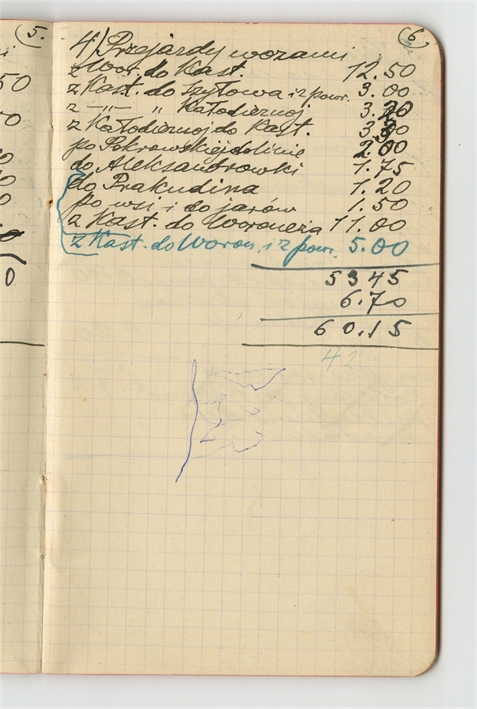 5.
6
4) Przejazdy wozami
z Wor. do Kast. 12.50
z Kast. do Szytowa i z powr. 3.00
z —"— " Kałodieznoj 3.20
z Kałodieznoj do Kast. 3.30
po Pokrowskiej dolinie 2.00
do Aleksandrowki 1.75
do Prakudina 1.20
po wsi i do jarów 1.50
z Kast. do Woroneża 11.00
z Kast. do Woron. i z powr. 5.00
5345
6.70
60.15
42